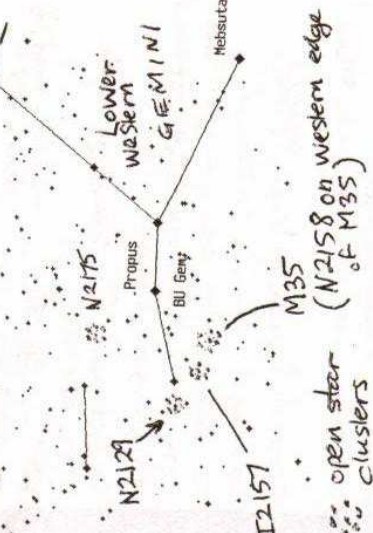 Mebsuta
Lower
western
GEMINI
N2175
Propus
BU Gem
N2129
I2157
M35
(N2158 on western edge
of M35)
open star
clusters